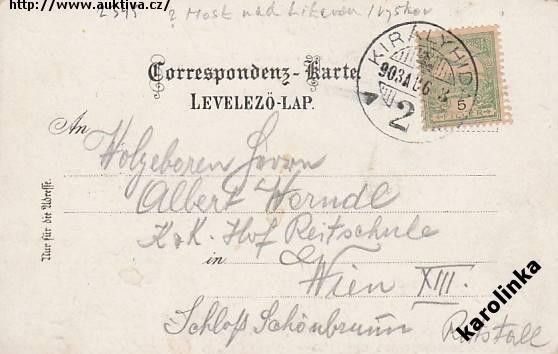 http://www.auktiva.cz/
? Most nad Litavou / Vyškov
Correspondenz-Karte.
LEVELEZŐ-LAP.
KIRÁLYHIDA
903 AUG 8
2
5
FILLÉR
An
Holzeboren Herrn
Albert Herndl
K.K. Hof Reitschule
in Wien XIII.
Schloß Schönbrunn Reitstall
Nur für die Adresse.
karolinka